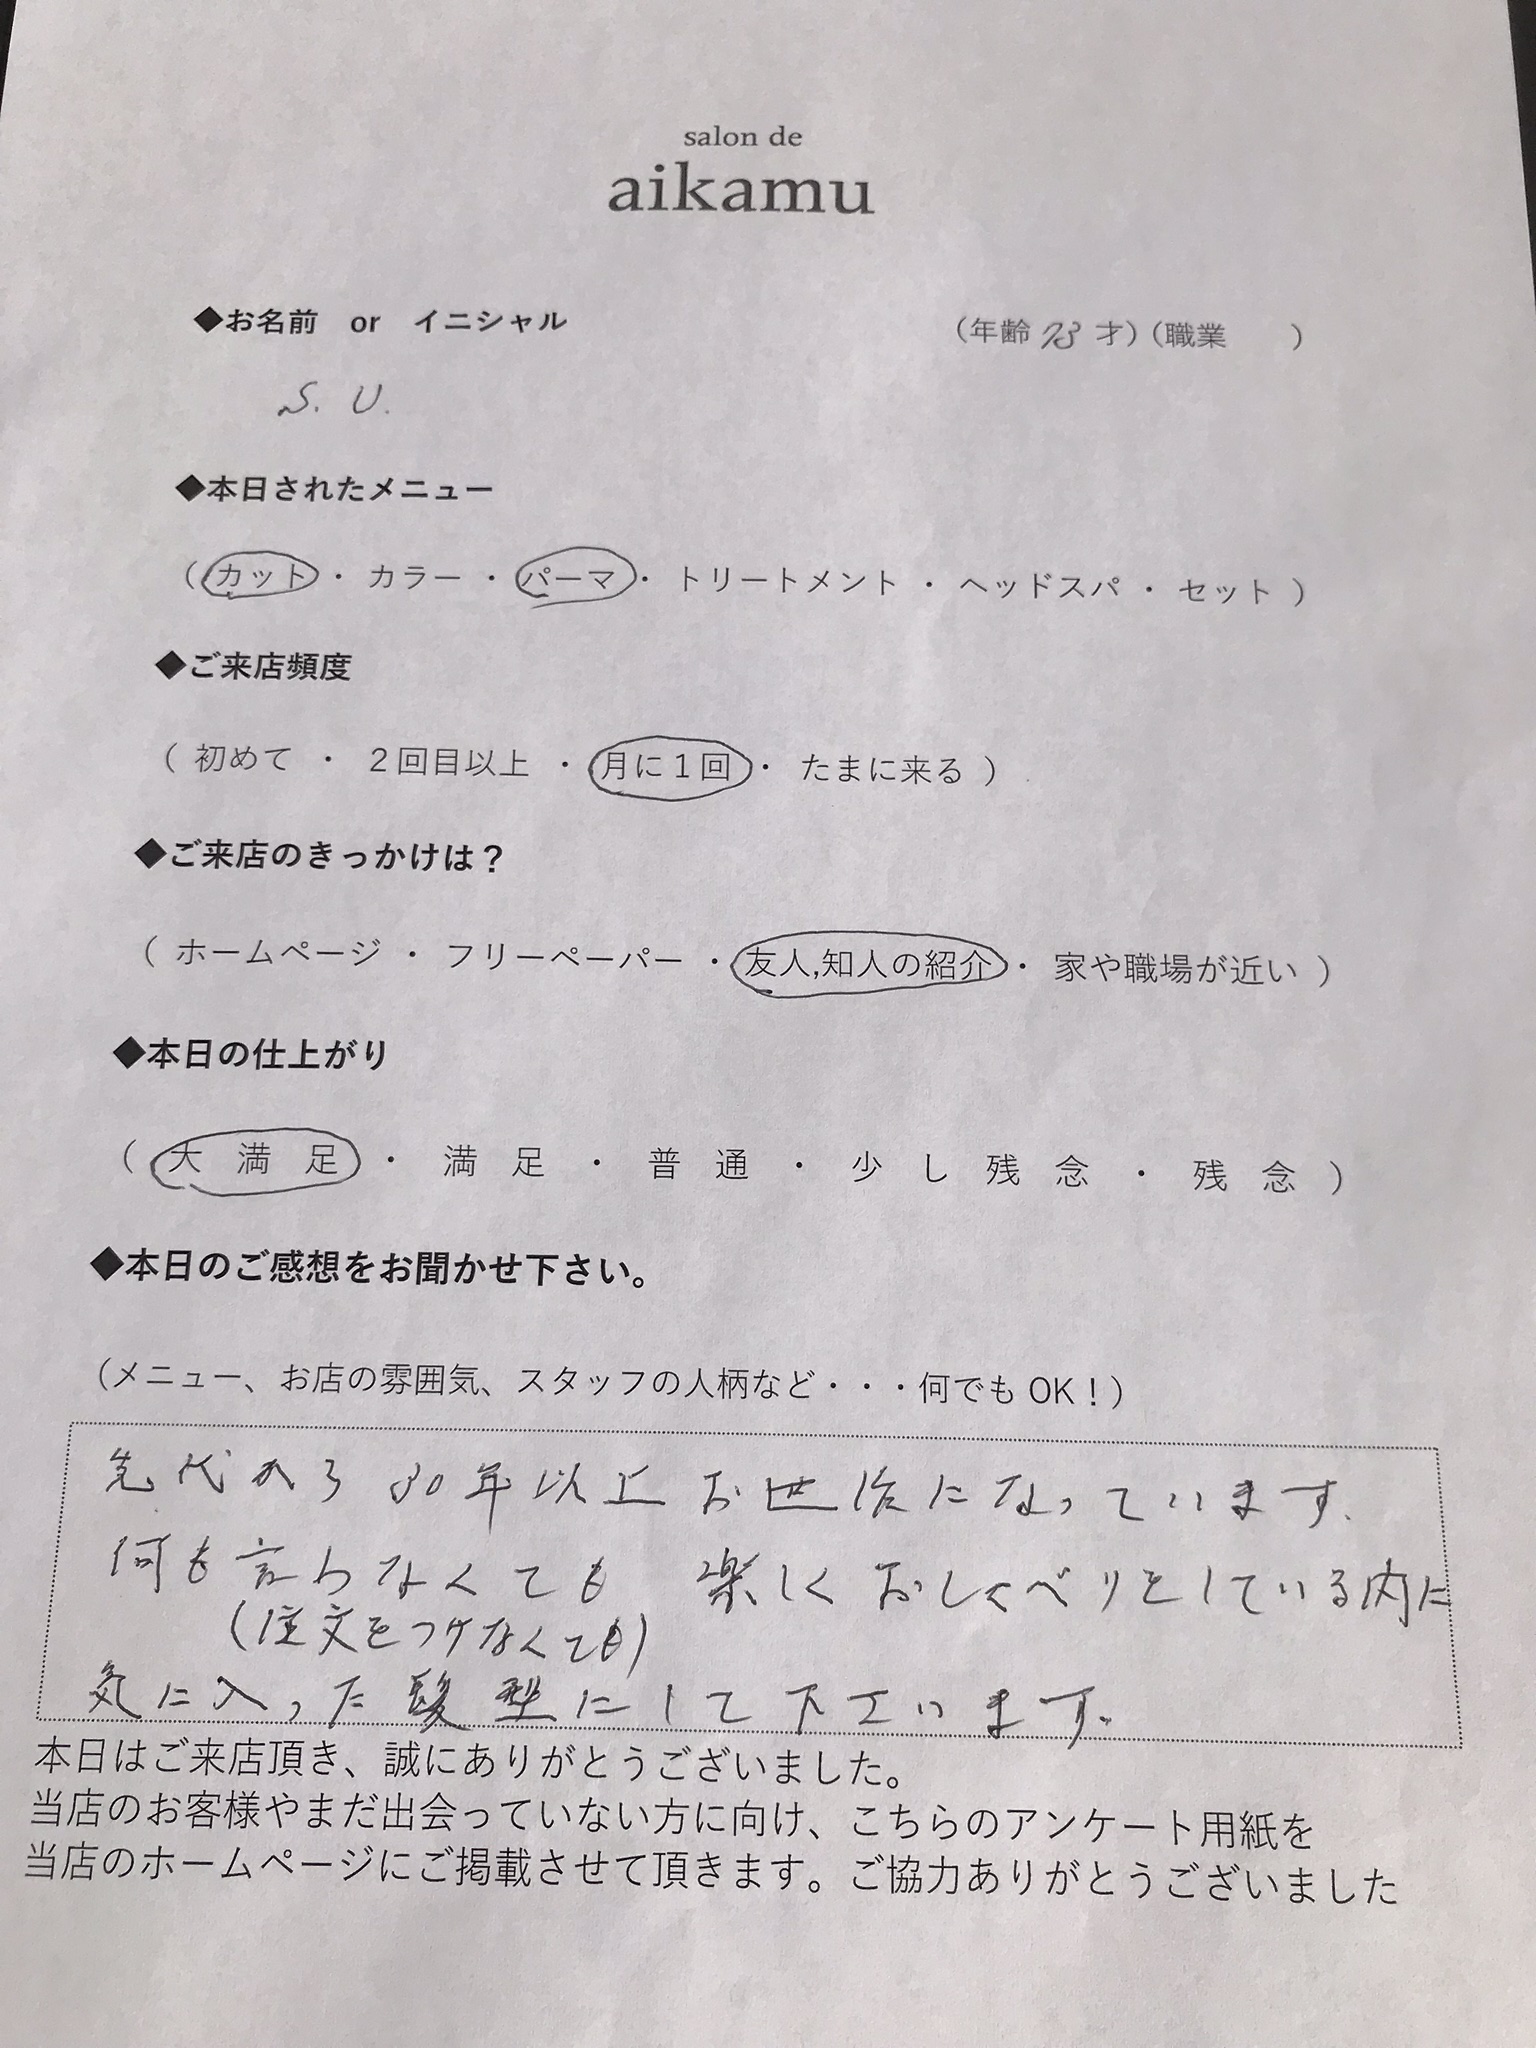 salon de
aikamu
◆お名前 or イニシャル (年齢 73 才)(職業 )
S. U.
◆本日されたメニュー
( カット ・ カラー ・ パーマ ・ トリートメント ・ ヘッドスパ ・ セット )
◆ご来店頻度
( 初めて ・ 2回目以上 ・ 月に1回 ・ たまに来る )
◆ご来店のきっかけは?
( ホームページ ・ フリーペーパー ・ 友人,知人の紹介 ・ 家や職場が近い )
◆本日の仕上がり
( 大 満 足 ・ 満 足 ・ 普 通 ・ 少 し 残 念 ・ 残 念 )
◆本日のご感想をお聞かせ下さい。
(メニュー、お店の雰囲気、スタッフの人柄など・・・何でも OK!)
先代から 30年以上 お世話になっています.
何も言わなくても 楽しくおしゃべりをしている内に
(注文をつけなくても)
気に入った髪型にして下さいます。
本日はご来店頂き、誠にありがとうございました。
当店のお客様やまだ出会っていない方に向け、こちらのアンケート用紙を
当店のホームページにご掲載させて頂きます。ご協力ありがとうございました